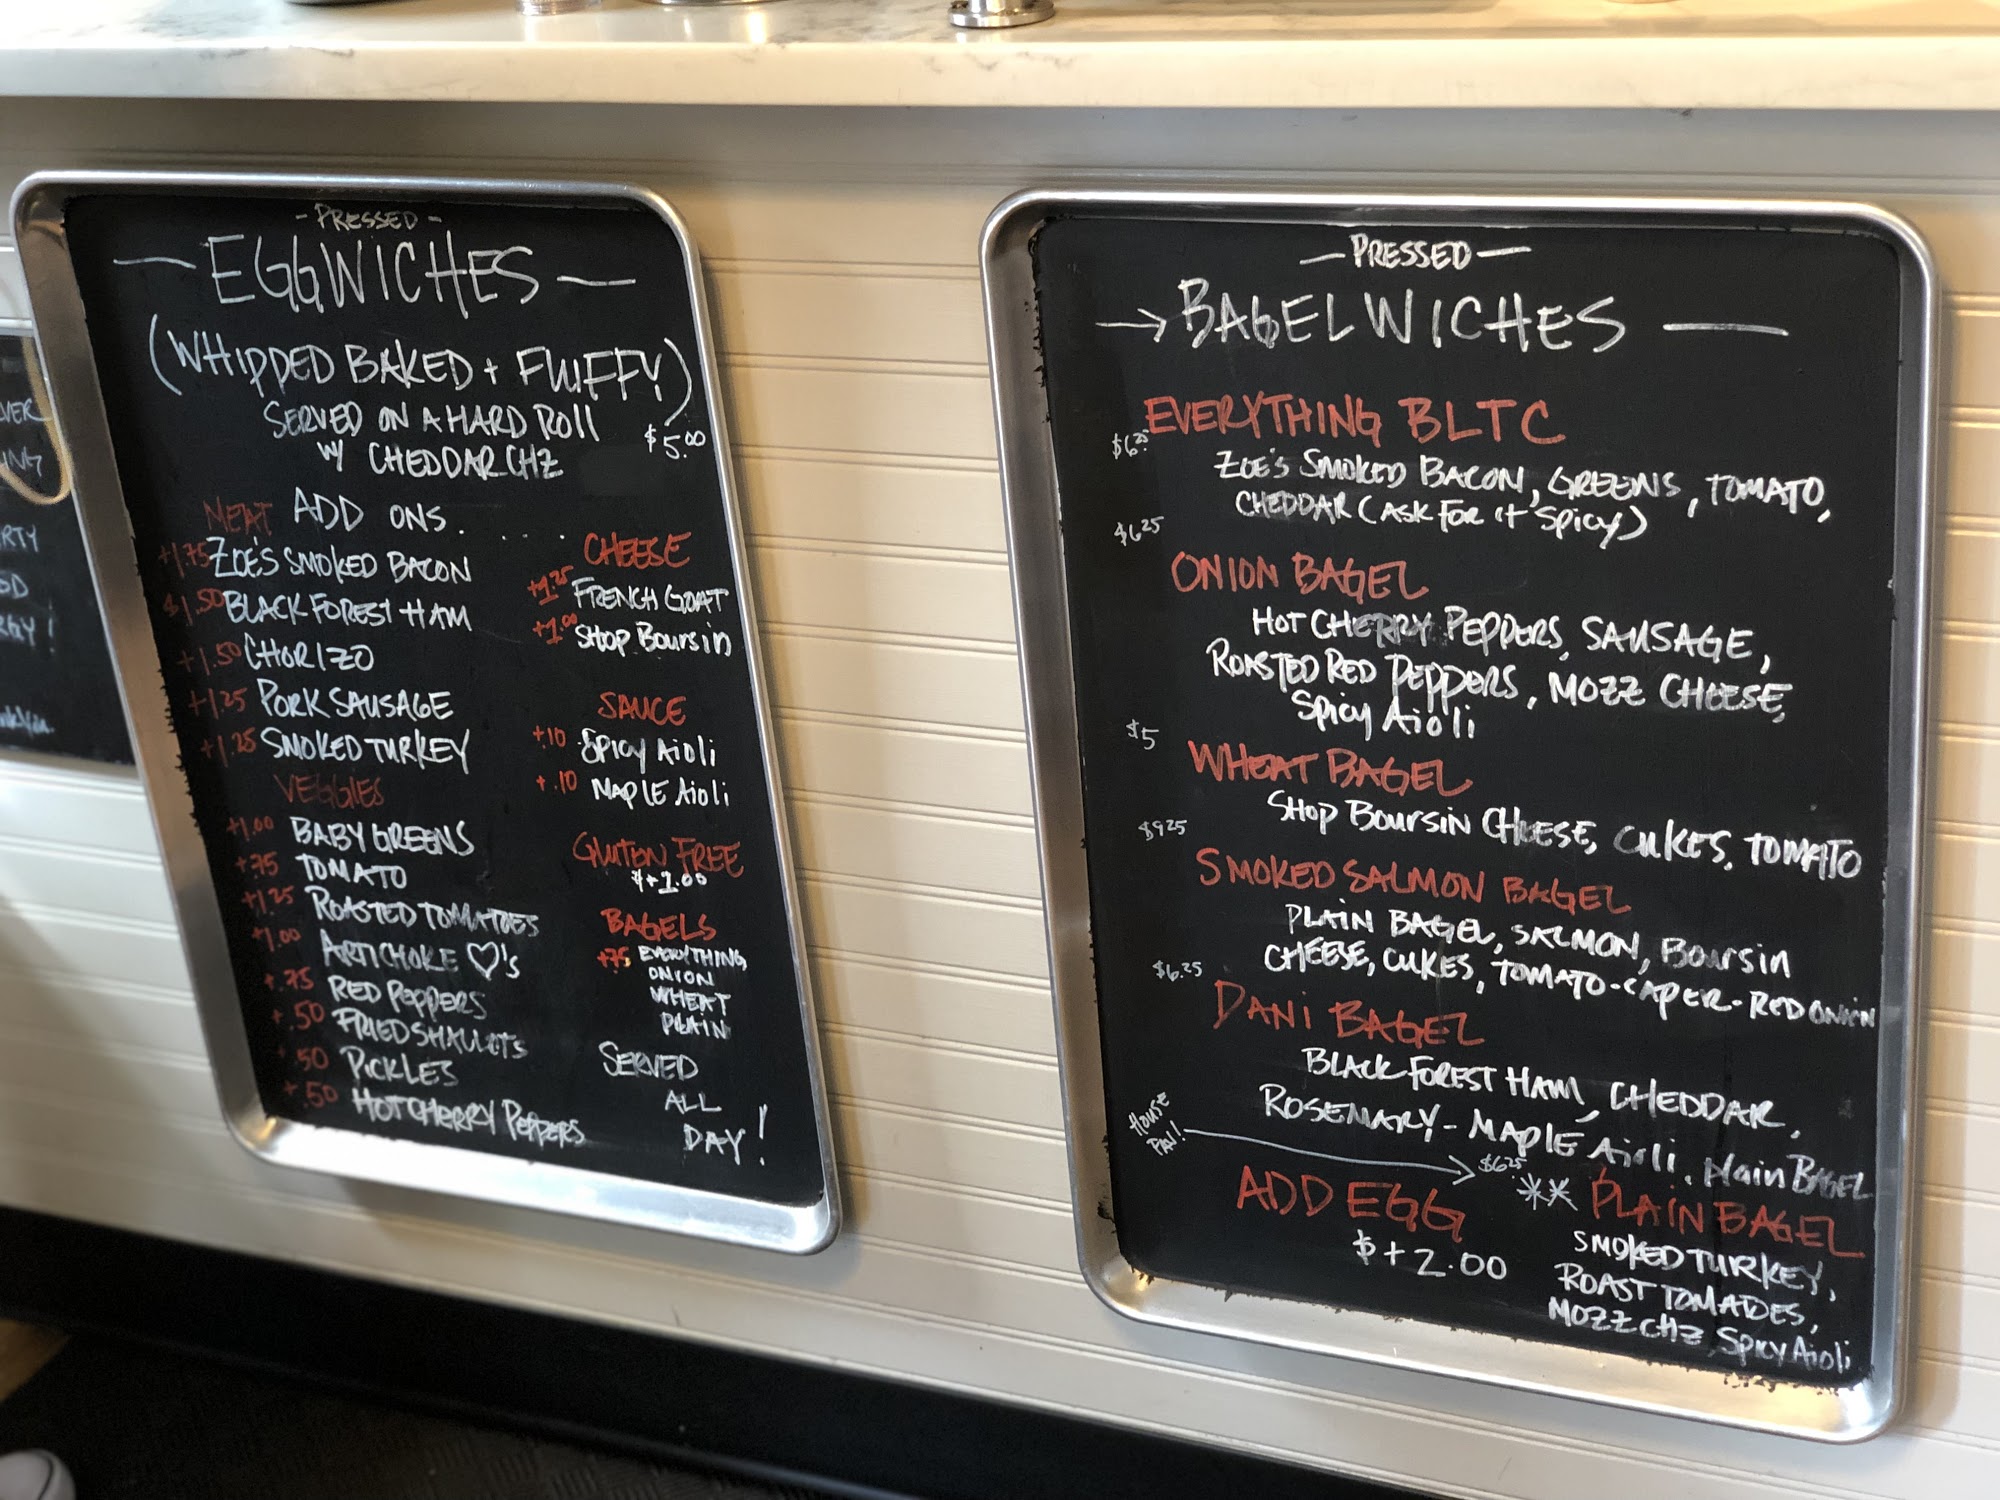 VER
ING
RTY
RGY!
- PRESSED -
— EGGWICHES —
(WHIPPED BAKED + FLUFFY!)
SERVED ON A HARD ROLL
W/ CHEDDAR CHZ
$5.00
MEAT ADD ONS. . . . .
+1.75 ZOE'S SMOKED BACON
$1.50 BLACK FOREST HAM
+1.50 CHORIZO
+1.25 PORK SAUSAGE
+1.25 SMOKED TURKEY
VEGGIES
+1.00 BABY GREENS
+.75 TOMATO
+1.25 ROASTED TOMATOES
+1.00 ARTICHOKE ♡'s
+.75 RED PEPPERS
+.50 FRIED SHALLOTS
+.50 PICKLES
+.50 HOT CHERRY PEPPERS
CHEESE
+1.25 FRENCH GOAT
+1.00 SHOP BOURSIN
SAUCE
+.10 SPICY AIOLI
+.10 MAPLE AIOLI
GLUTON FREE
$+1.00
BAGELS
+.75 EVERYTHING
ONION
WHEAT
PLAIN
SERVED
ALL
DAY!
— PRESSED —
→ BAGELWICHES —
$6.25 EVERYTHING BLTC
ZOE'S SMOKED BACON, GREENS, TOMATO,
CHEDDAR (ASK FOR IT SPICY)
$6.25
ONION BAGEL
HOT CHERRY PEPPERS, SAUSAGE,
ROASTED RED PEPPERS, MOZZ CHEESE,
SPICY AIOLI
$5
WHEAT BAGEL
SHOP BOURSIN CHEESE, CUKES, TOMATO
$925
SMOKED SALMON BAGEL
PLAIN BAGEL, SALMON, BOURSIN
CHEESE, CUKES, TOMATO-CAPER-RED ONION
$6.25
DANI BAGEL
BLACK FOREST HAM, CHEDDAR,
ROSEMARY-MAPLE AIOLI. PLAIN BAGEL
HOUSE
FAV!
$6.25
** PLAIN BAGEL
SMOKED TURKEY,
ROAST TOMATOES,
MOZZ CHZ, SPICY AIOLI
ADD EGG
$+2.00